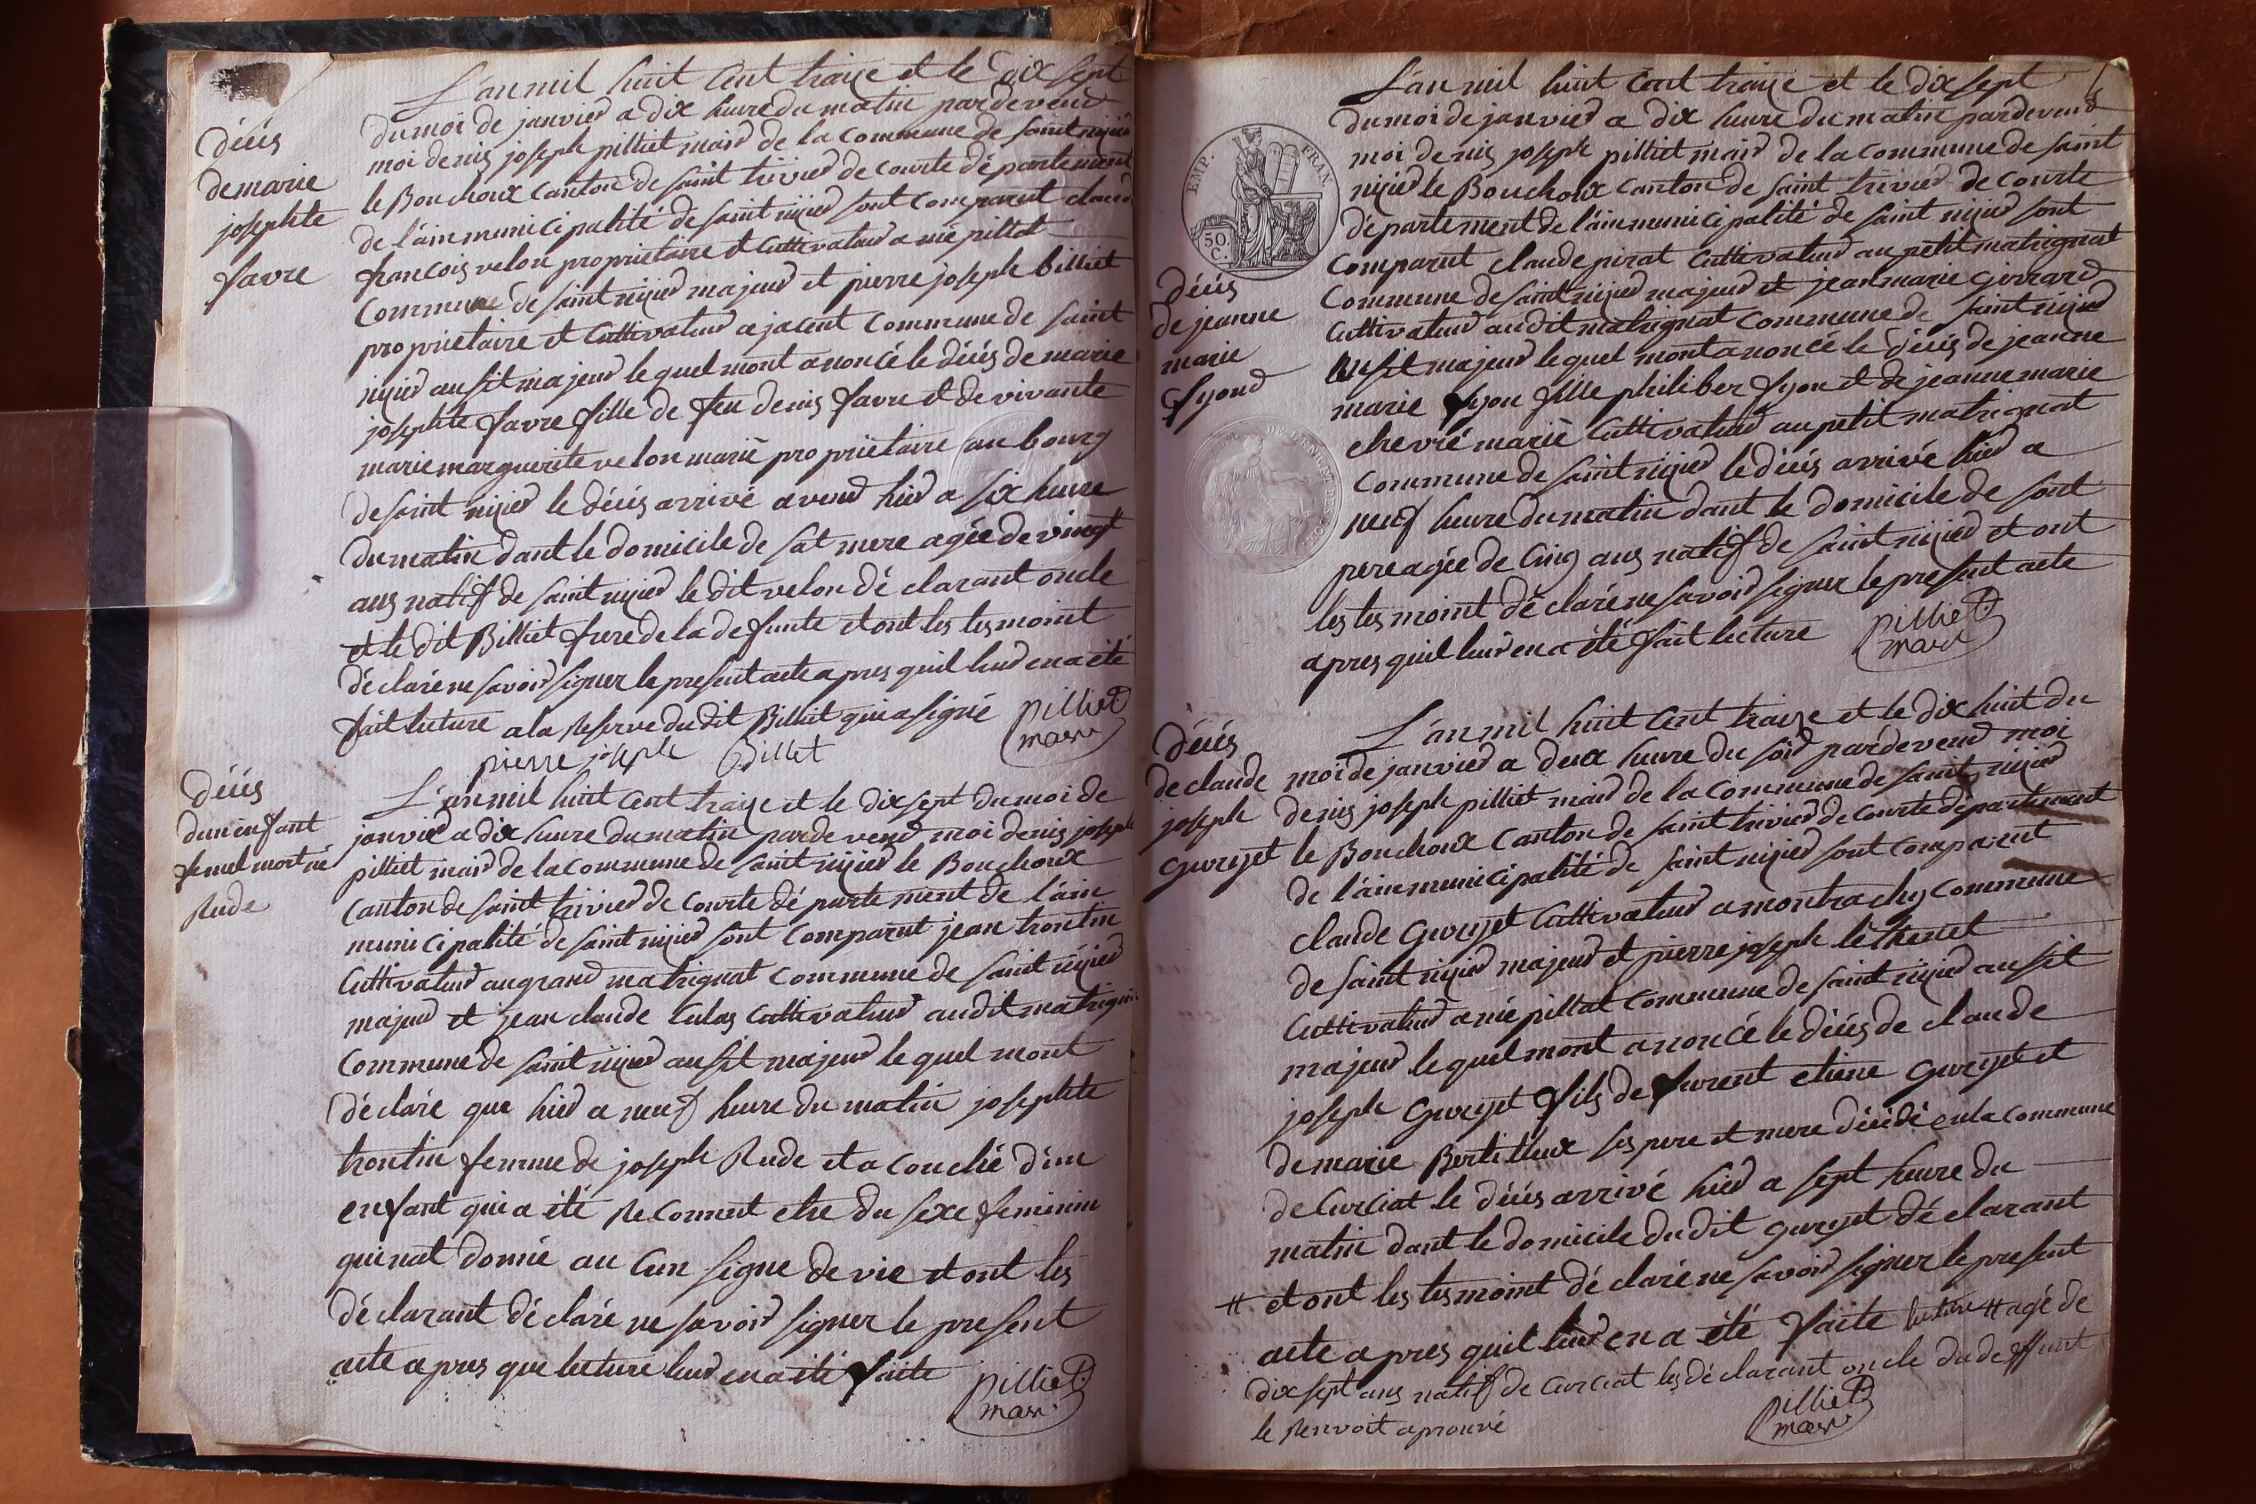 L'an mil huit Cent traize et le dix sept
du moi de janvier a dix heure du matin pardeveud
moi denis joseph pilliet maire de la Commune de saint nizier
le Bouchoux Canton de saint trivier de Courte département
de l'ain municipalité de saint nizier sont Comparut claude
francois velon proprietaire et Cultivateur a mépillat
Commune de saint nizier majeur et pierre joseph billiet
proprietaire et Cultivateur ajacent Commune de saint
nizier ausit majeur lequel mont anoncé le décés de marie
josephte favre fille de feu denis favre et de vivante
marie marguerite velon marié proprietaire au bourg
de saint nizier le décés arrivé avend hier a six heure
du matin dant le domicile de sat mere agée de vingt
ans natif de saint nizier le dit velon déclarant oncle
et le dit Billiet frere de la defunte et ont les tesmoint
déclaré ne savoir signer le present acte apres quil leur en a été
fait lecture a la Reserve du dit Billiet qui a signé
pierre joseph Billet
pilliet
maire
décés
de marie
josephte
favre
L'an mil huit Cent traize et le dix sept du moi de
janvier a dix heure du matin pardevend moi denis joseph
pilliet maire de la Commune de saint nizier le Bouchoux
Canton de saint trivier de Courte département de l'ain
municipalité de saint nizier sont Comparut jean trontin
Cultivateur au grand matrignat Commune de saint nizier
majeur et jean claude Culas Cultivateur audit matrignat
Commune de saint nizier ausit majeur lequel mont
déclaré que hier a neuf heure du matin josephte
trontin femme de joseph Rude et acouché d'un
enfant qui a été Reconnut etre du sexe feminin
qui nat donné au Cun signe de vie et ont les
déclarant déclaré ne savoir signer le present
acte apres que lecture leur en a été faite
pilliet
maire
décés
dun enfant
femel mort né
Rude
L'an mil huit Cent traize et le dix sept
du moi de janvier a dix heure du matin pardevend
moi denis joseph pilliet maire de la Commune de saint
nizier le Bouchoux Canton de saint trivier de Courte
département de l'ain municipalité de saint nizier sont
Comparut claude pirat Cultivateur au petit matrignat
Commune de saint nizier majeur et jean marie girrard
Cultivateur audit matrignat Commune de saint nizier
ausit majeur lequel mont anoncé le décés de jeanne
marie fyon fille philiber fyon et de jeanne marie
chevrié marié Cultivateur au petit matrignat
Commune de saint nizier le décés arrivé hier a
neuf heure du matin dant le domicile de sont
pere agée de Cinq ans natif de saint nizier et ont
les tesmoint déclaré ne savoir signer le present acte
apres quil leur en a été fait lecture
pilliet
maire
EMP. FRAN.
50.
C.
décés
de jeanne
marie
fyond
L'an mil huit Cent traize et le dix huit du
moi de janvier a deux heure du soir pardevend moi
denis joseph pilliet maire de la Commune de saint nizier
le Bouchoux Canton de saint trivier de Courte département
de l'ain municipalité de saint nizier sont Comparut
claude gureyet Cultivateur a montrachy Commune
de saint nizier majeur et pierre joseph léthenet
Cultivateur a mépillat Commune de saint nizier ausit
majeur lequel mont anoncé le décés de claude
joseph gureyet fils de furent etiene gureyet et
de marie Bertilleux ses pere et mere décédé en la Commune
de Curciat le décés arrivé hier a sept heure du
matin dant le domicile du dit gureyet déclarant
# et ont les tesmoint déclaré ne savoir signer le present
acte apres quil leur en a été faite lecture # agé de
dix sept ans natif de Curciat les déclarant oncle du deffunt
le Renvoit aprouvé
pilliet
maire
décés
de claude
joseph
gureyet